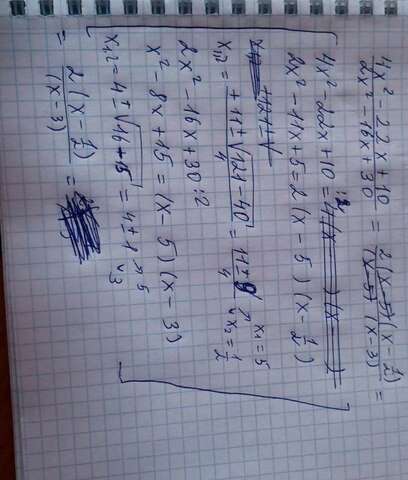 (4x² - 22x + 10)/(2x² - 16x + 30) = (2(x-5)(x-1/2))/((x-5)(x-3)) =
4x² - 22x + 10 = :2
2x² - 11x + 5 = 2(x - 5)(x - 1/2)
x₁,₂ = (+11 ± √(121 - 40))/4 = (11 ± 9)/4 x₁ = 5 x₂ = 1/2
2x² - 16x + 30 :2
x² - 8x + 15 = (x - 5)(x - 3)
x₁,₂ = 4 ± √(16 - 15) = 4 ± 1 5 3
= (2(x - 1/2))/((x - 3)) =